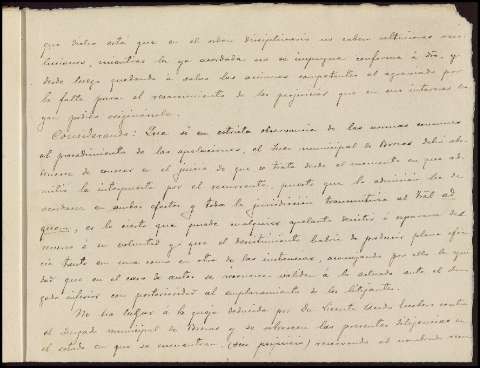 que dicho está que en el orden disciplinario no caben ulteriores
mientras la ya acordada no se impugna conforme á dro, y
desde luego quedando á salvo las acciones competentes al agraviado por
la falta para el resarcimiento de los perjuicios que en sus intereses ha
yan podido originársele.
Considerando: Que si en estricta observancia de las normas comunes
al procedimiento de las apelaciones, el Juez municipal de debió abs
tenerse de conocer en el juicio de que se trata desde el momento en que ad
mitió la interpuesta por el recurrente, puesto que la admisión ha de
en ambos efectos y toda la jurisdicción transmitirse al Tral ad
quem, es lo cierto que puede cualquier apelante desistir ó separarse del
recurso á su voluntad ya que el desistimiento habría de producir plena efica
cia tanto en una como en otra de las instancias, por ello la
dad que en el caso de autos se reconoce validez á lo actuado ante el Juz
gado inferior con posterioridad al emplazamiento de los litigantes.
No ha lugar á la queja deducida por Dn Vicente contra
el Juzgado municipal de y se sobreseen las presentes diligencias en
el estado en que se encuentran, (sin perjuicio) reservando al nombrado